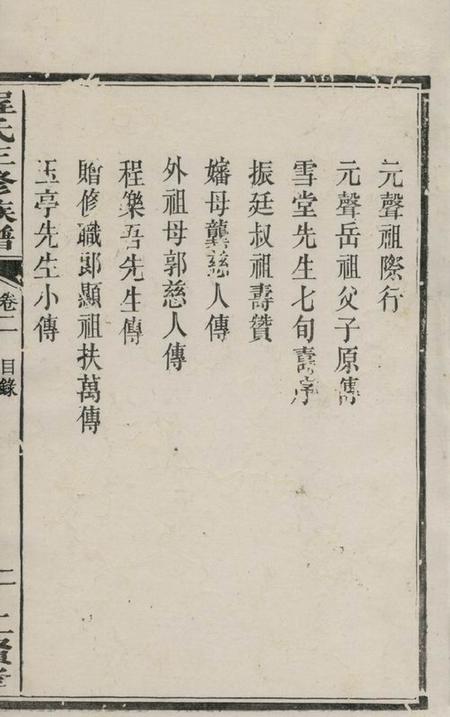 元聲祖際行
元聲岳祖父子原傳
雪堂先生七旬壽序
振廷叔祖壽贊
嬸母龔慈人傳
外祖母郭慈人傳
程樂吾先生傳
贈修職郎顯祖扶萬傳
玉亭先生小傳
程氏三修族譜
卷二
目錄
二